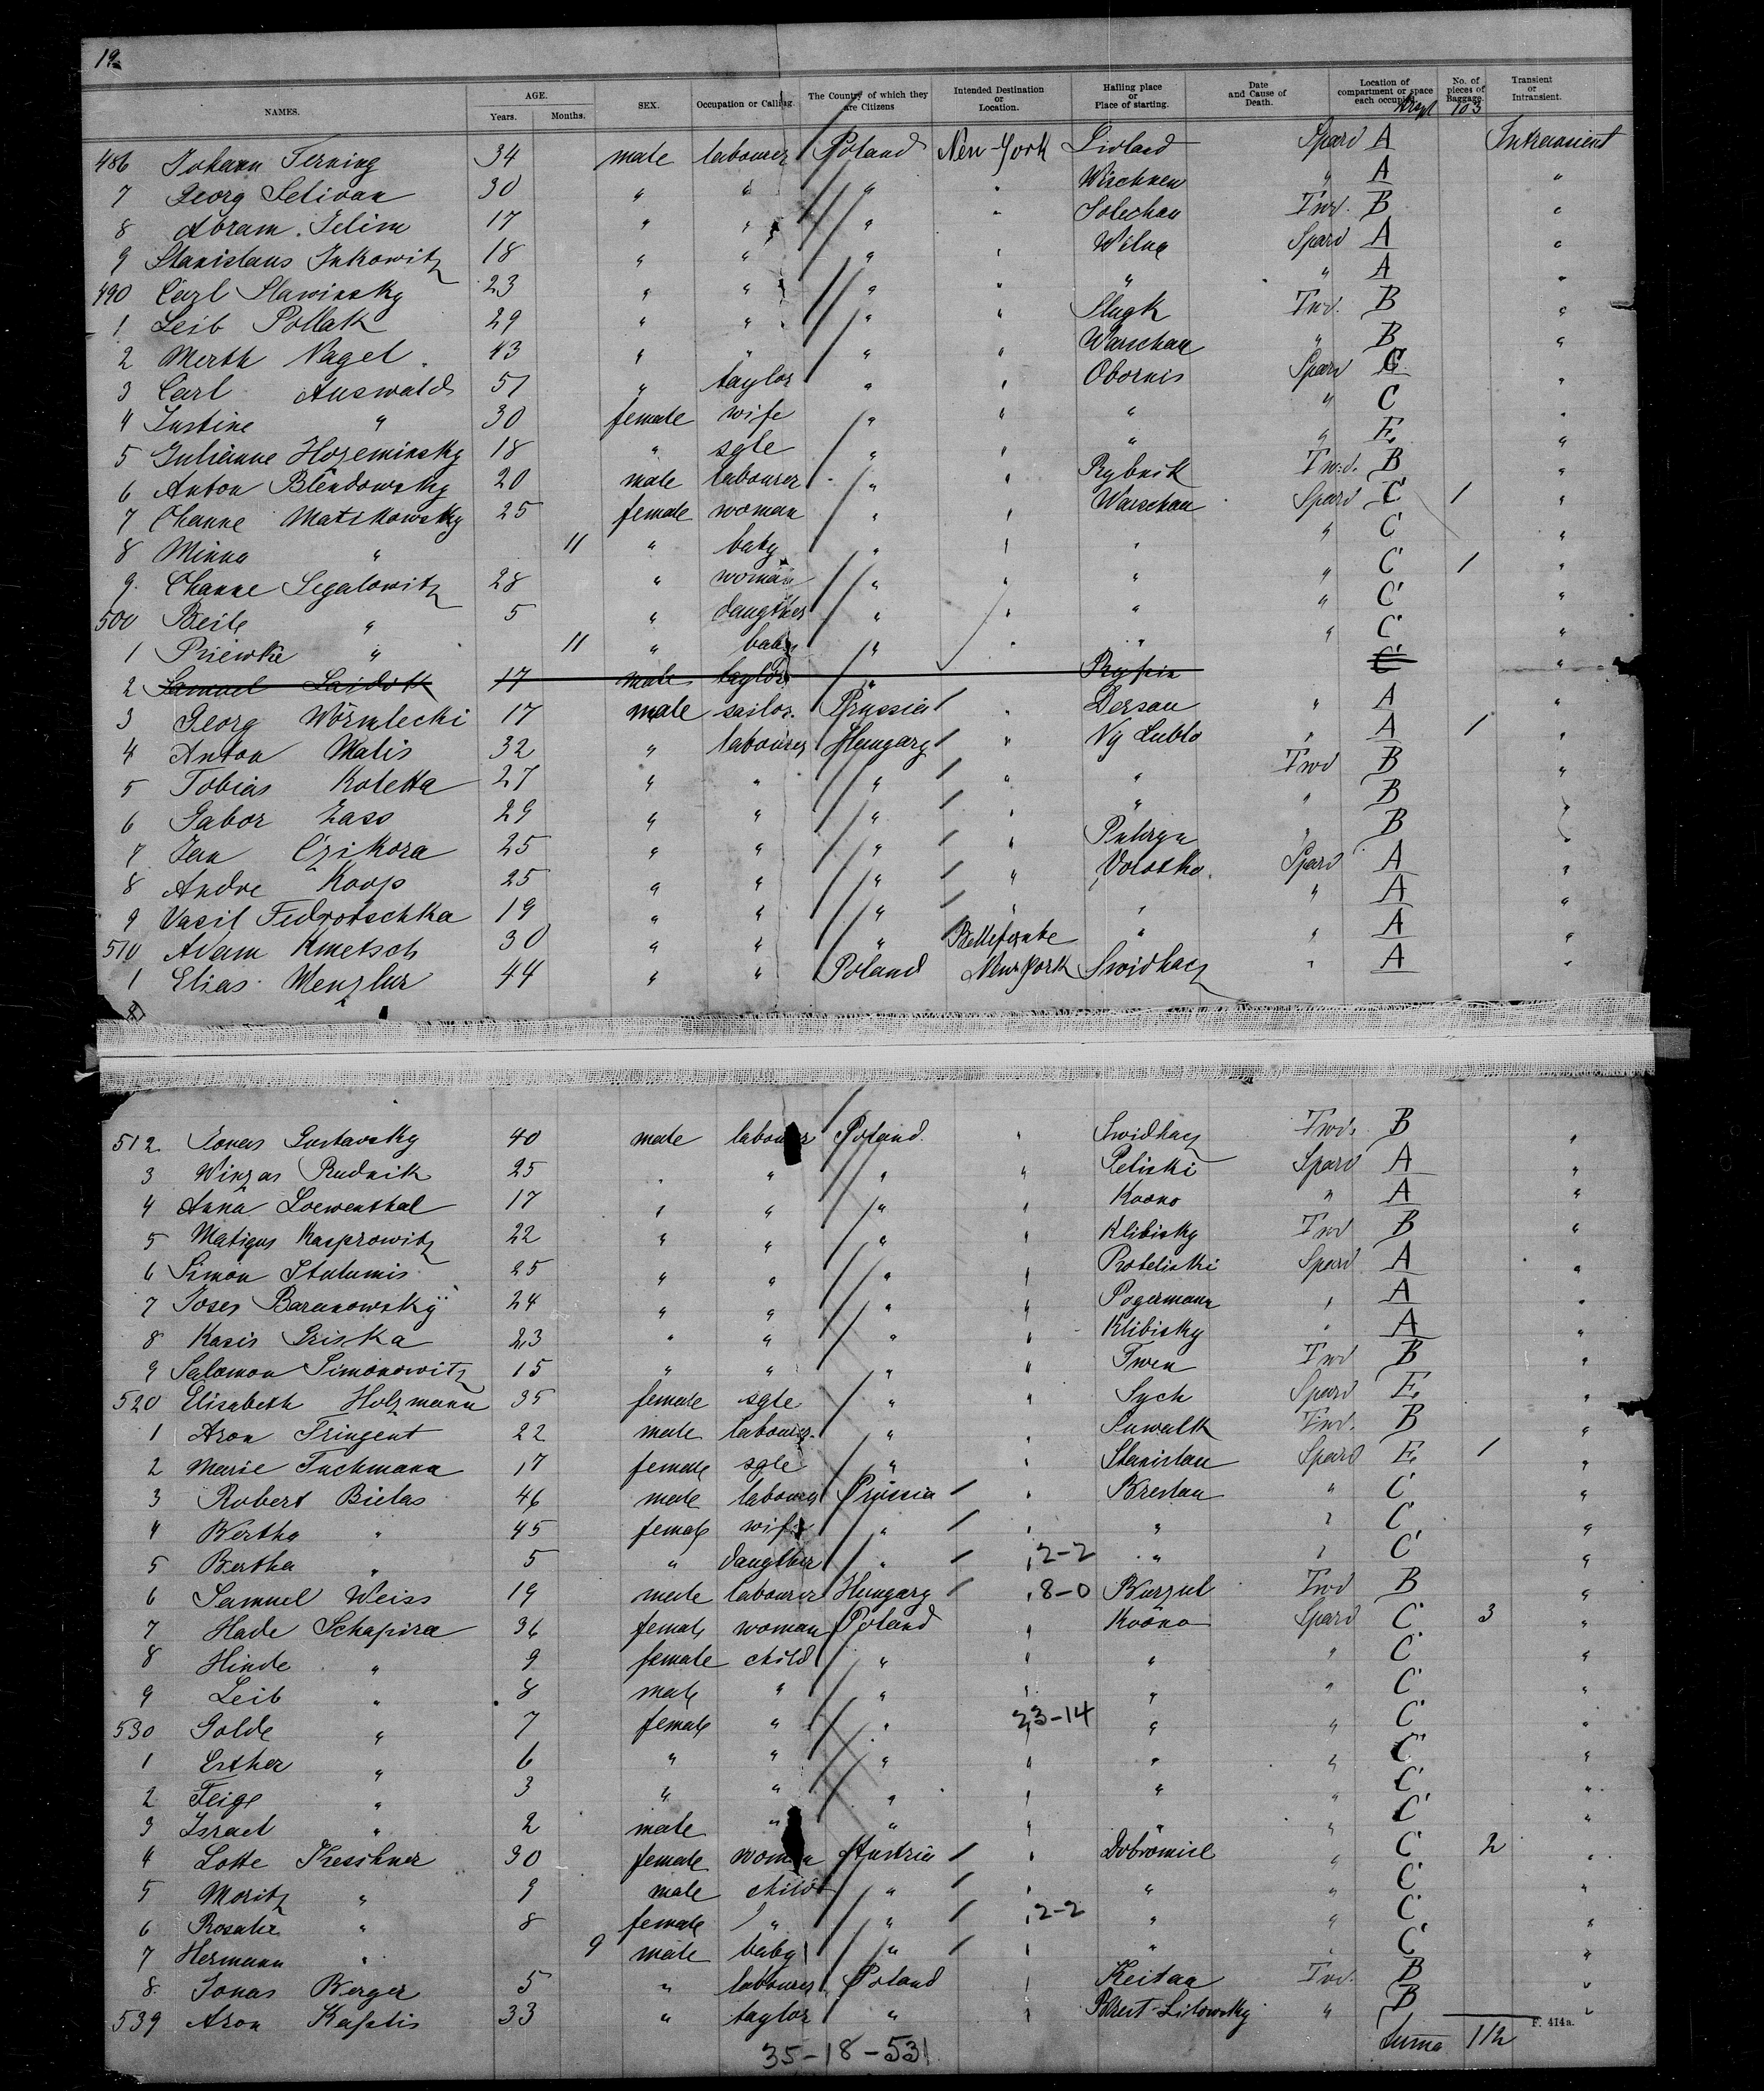 19
NAMES. AGE. Years. Months. SEX. Occupation or Calling. The Country of which they are Citizens Intended Destination or Location. Hailing place or Place of starting. Date and Cause of Death. Location of compartment or space each occupied. No. of pieces of Baggage. Transient or Intransient.
103
486 Johann Ferning 34 male labourer Poland New-York Livland Spard A Intransient
7 Georg Selivan 30 " " " " Wischnew " A "
8 Abram Selim 17 " " " " Solechau Twd. B "
9 Stanislaus Inkowitz 18 " " " " Wilna Spard A "
490 Carl Slawinsky 23 " " " " " " A "
1 Leib Pollak 29 " " " " Slugk Twd. B "
2 Merth Nagel 43 " " " " Warschau " B "
3 Carl Auswald 51 " taylor " " Obornis Spard C "
4 Justine " 30 female wife " " " " C "
5 Julianne Hozeminsky 18 " sgle " " " " E "
6 Anton Blendowsky 20 male labourer " " Rybnik Twd. B "
7 Channe Matskowsky 25 female woman " " Warschau Spard C 1 "
8 Minna " 11 " baby " " " " C "
9 Channe Segalowitz 28 " woman " " " " C 1 "
500 Beile " 5 " daugther " " " " C "
1 Priewke " 11 " baby " " " " C "
2 Samuel 17 male taylor " Rypin C "
3 Georg Wörmlecki 17 male sailor Prussia " Dersau " A "
4 Anton Matis 32 " labourer Hungary " Ny Lublo " A 1 "
5 Tobias Koletta 27 " " " " " Twd B "
6 Gabor Zass 29 " " " " " " B "
7 Jan Czikora 25 " " " " " B "
8 Andre Koop 25 " " " " Volotko Spard A "
9 Vasil Fedrotschka 19 " " " " " " A "
510 Adam Kmetsch 30 " " " Bellefonte " " A "
1 Elias Wenzlur 44 " " Poland New York Swidhacz " A "
512 Jonas Gustavsky 40 male labourer Poland " Swidhacz Twd. B "
3 Winzas Rudnik 25 " " " " Peliski Spard A "
4 Anna Loewenthal 17 " " " " Kowno " A "
5 Matigus Kasprowitz 22 " " " " Klibisky Twd B "
6 Simon Stulumis 25 " " " " Poteliski Spard A "
7 Joses Baranowsky 24 " " " " Pogermann " A "
8 Kasis Griska 23 " " " " Klibisky " A "
9 Salomon Simonowitz 15 " " " " Twen Twd B "
520 Elisabeth Holzmann 35 female sgle " " Sych Spard E "
1 Aron Fringent 22 male labourer " " Suwalk Twd. B "
2 Marie Tuchmann 17 female sgle " " Stanislau Spard E 1 "
3 Robert Bielas 46 male labourer Prussia " Breslau " C "
4 Bertha " 45 female wife " " " " C "
5 Bertha " 5 " daugther " 2-2 " " C "
6 Samuel Weiss 19 male labourer Hungary 8-0 Burzul Twd B "
7 Hade Schapira 36 female woman Poland " Kowno Spard C 3 "
8 Hinde " 9 female child " " " " C "
9 Leib " 8 male " " " " " C "
530 Golde " 7 female " " 23-14 " " C "
1 Esther " 6 " " " " " " C "
2 Feige " 3 " " " " " " C "
3 Israel " 2 male " " " " " C "
4 Lotte Kesshner 30 female woman Austria " Dobromiel " C 2 "
5 Moritz " 9 male child " " " " C "
6 Rosalie " 8 female " " 2-2 " " C "
7 Hermann " 9 male baby " " " " C "
8 Jonas Berger 5 " labourer Poland " Keitaa Twd. B "
539 Aron Kaplis 33 " taylor " " Brest-Litowsky " B "
F. 414a.
35-18-531
Suma 112